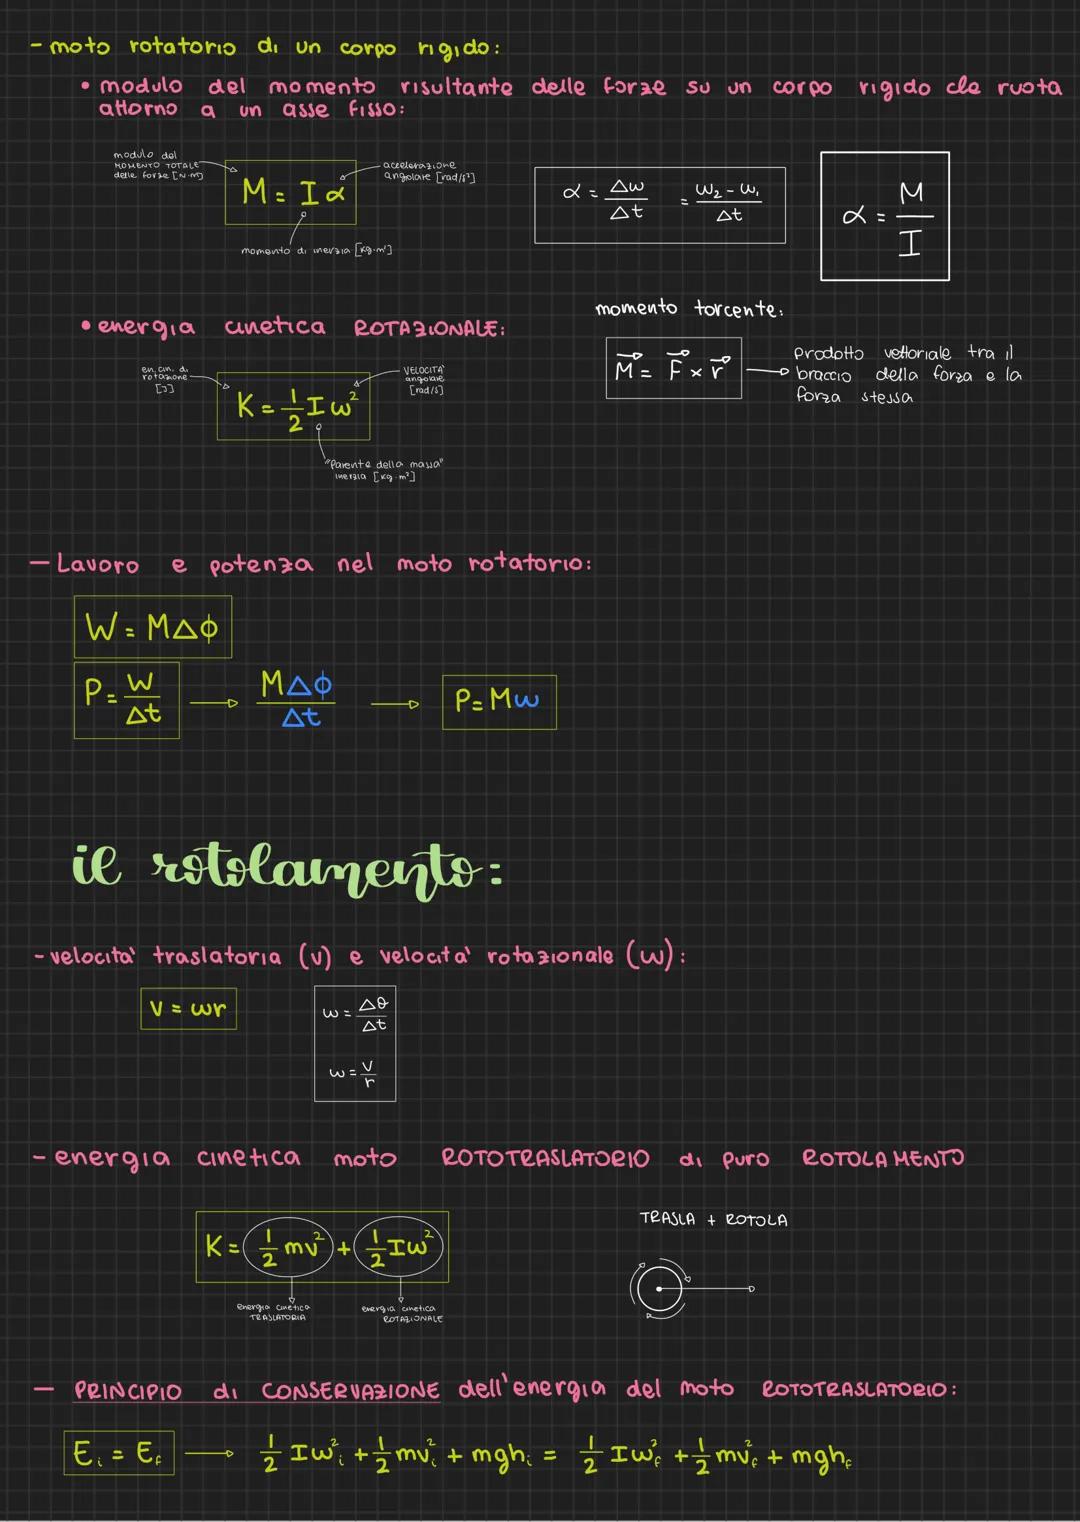 - moto rotatorio di un corpo rigido:
• modulo del momento risultante delle forze su un corpo rigido che ruota
attorno a un asse fisso:
modulo del
MOMENTO TOTALE
delle forze [N·m]
M = I α
accelerazione
angolare [rad/s²]
momento di inerzia [kg·m²]
α = Δω/Δt = ω₂ - ω₁/Δt
α = M/I
• energia cinetica ROTAZIONALE:
en. cin. di
rotazione
[J]
K = 1/2 I ω²
VELOCITA'
angolare
[rad/s]
"Parente della massa"
inerzia [kg·m²]
momento torcente:
M = F × r
prodotto vettoriale tra il
braccio della forza e la
forza stessa
- Lavoro e potenza nel moto rotatorio:
W = MΔϕ
P = W/Δt → MΔϕ/Δt → P = Mω
il rotolamento:
- velocita' traslatoria (v) e velocita' rotazionale (ω):
v = ωr
ω = Δθ/Δt
ω = v/r
- energia cinetica moto ROTOTRASLATORIO di puro ROTOLAMENTO
K = 1/2 mv² + 1/2 Iω²
energia cinetica
TRASLATORIA
energia cinetica
ROTAZIONALE
TRASLA + ROTOLA
- PRINCIPIO di CONSERVAZIONE dell'energia del moto ROTOTRASLATORIO:
Eᵢ = E_f → 1/2 Iωᵢ² + 1/2 mvᵢ² + mghᵢ = 1/2 Iω_f² + 1/2 mv_f² + mgh_f